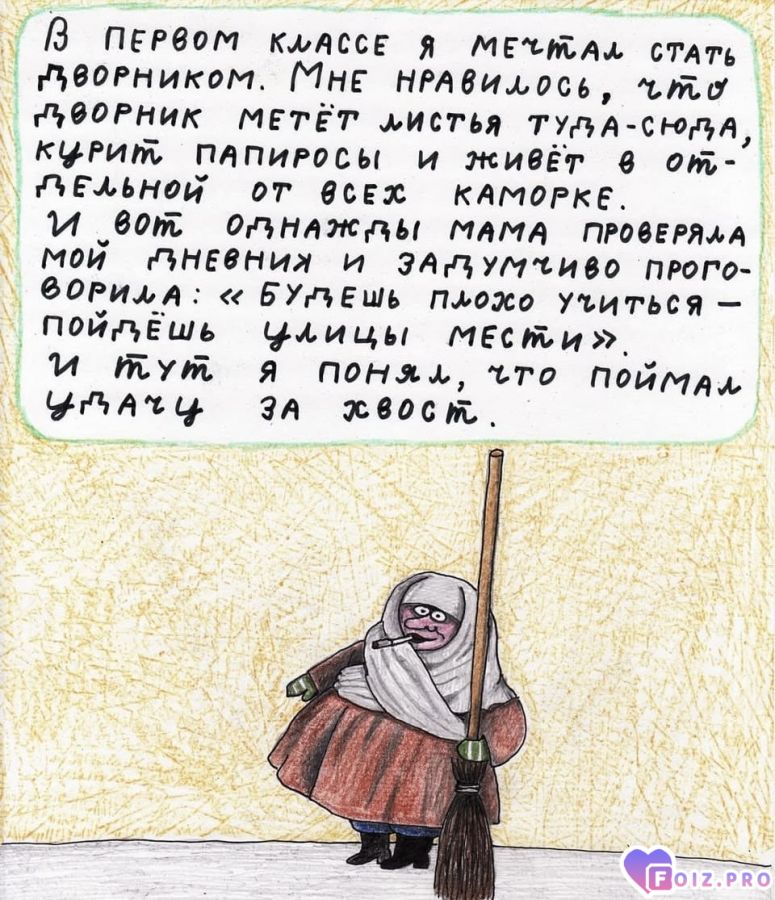 В ПЕРВОМ КЛАССЕ Я МЕЧТАЛ СТАТЬ
ДВОРНИКОМ. МНЕ НРАВИЛОСЬ, ЧТО
ДВОРНИК МЕТЁТ ЛИСТЬЯ ТУДА-СЮДА,
КУРИТ ПАПИРОСЫ И ЖИВЁТ В ОТ-
ДЕЛЬНОЙ ОТ ВСЕХ КАМОРКЕ.
И ВОТ ОДНАЖДЫ МАМА ПРОВЕРЯЛА
МОЙ ДНЕВНИК И ЗАДУМЧИВО ПРОГО-
ВОРИЛА: «БУДЕШЬ ПЛОХО УЧИТЬСЯ –
ПОЙДЁШЬ УЛИЦЫ МЕСТИ».
И ТУТ Я ПОНЯЛ, ЧТО ПОЙМАЛ
УДАЧУ ЗА ХВОСТ.
FOIZ.PRO